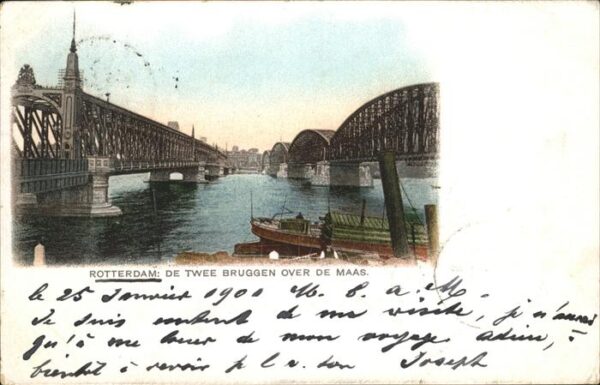 ROTTERDAM: DE TWEE BRUGGEN OVER DE MAAS.
le 25 Janvier 1901 M. E. a. M.
Je suis content de ma visite, je n'aurai
qu'à me louer de mon voyage. Adieu, à
bientôt à revoir p l v. ton Joseph